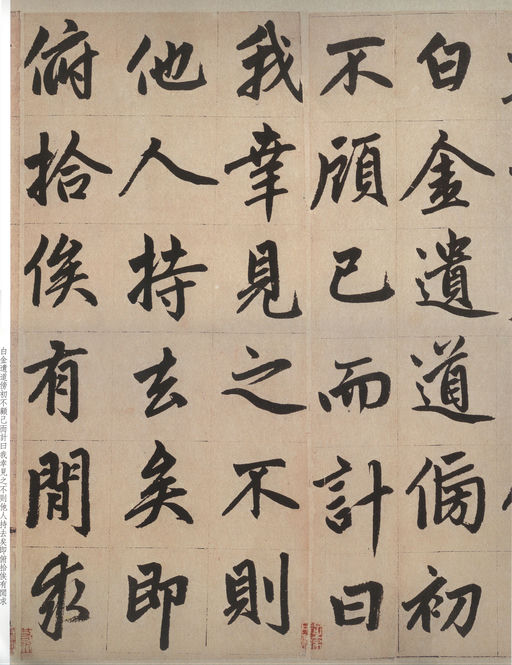 白金遺道傍初
不顧已而計曰
我幸見之不則
他人持去矣即
俯拾俟有閒求
白金遺道傍初不顧己而計曰我幸見之不則他人持去矣即俯拾俟有閒求